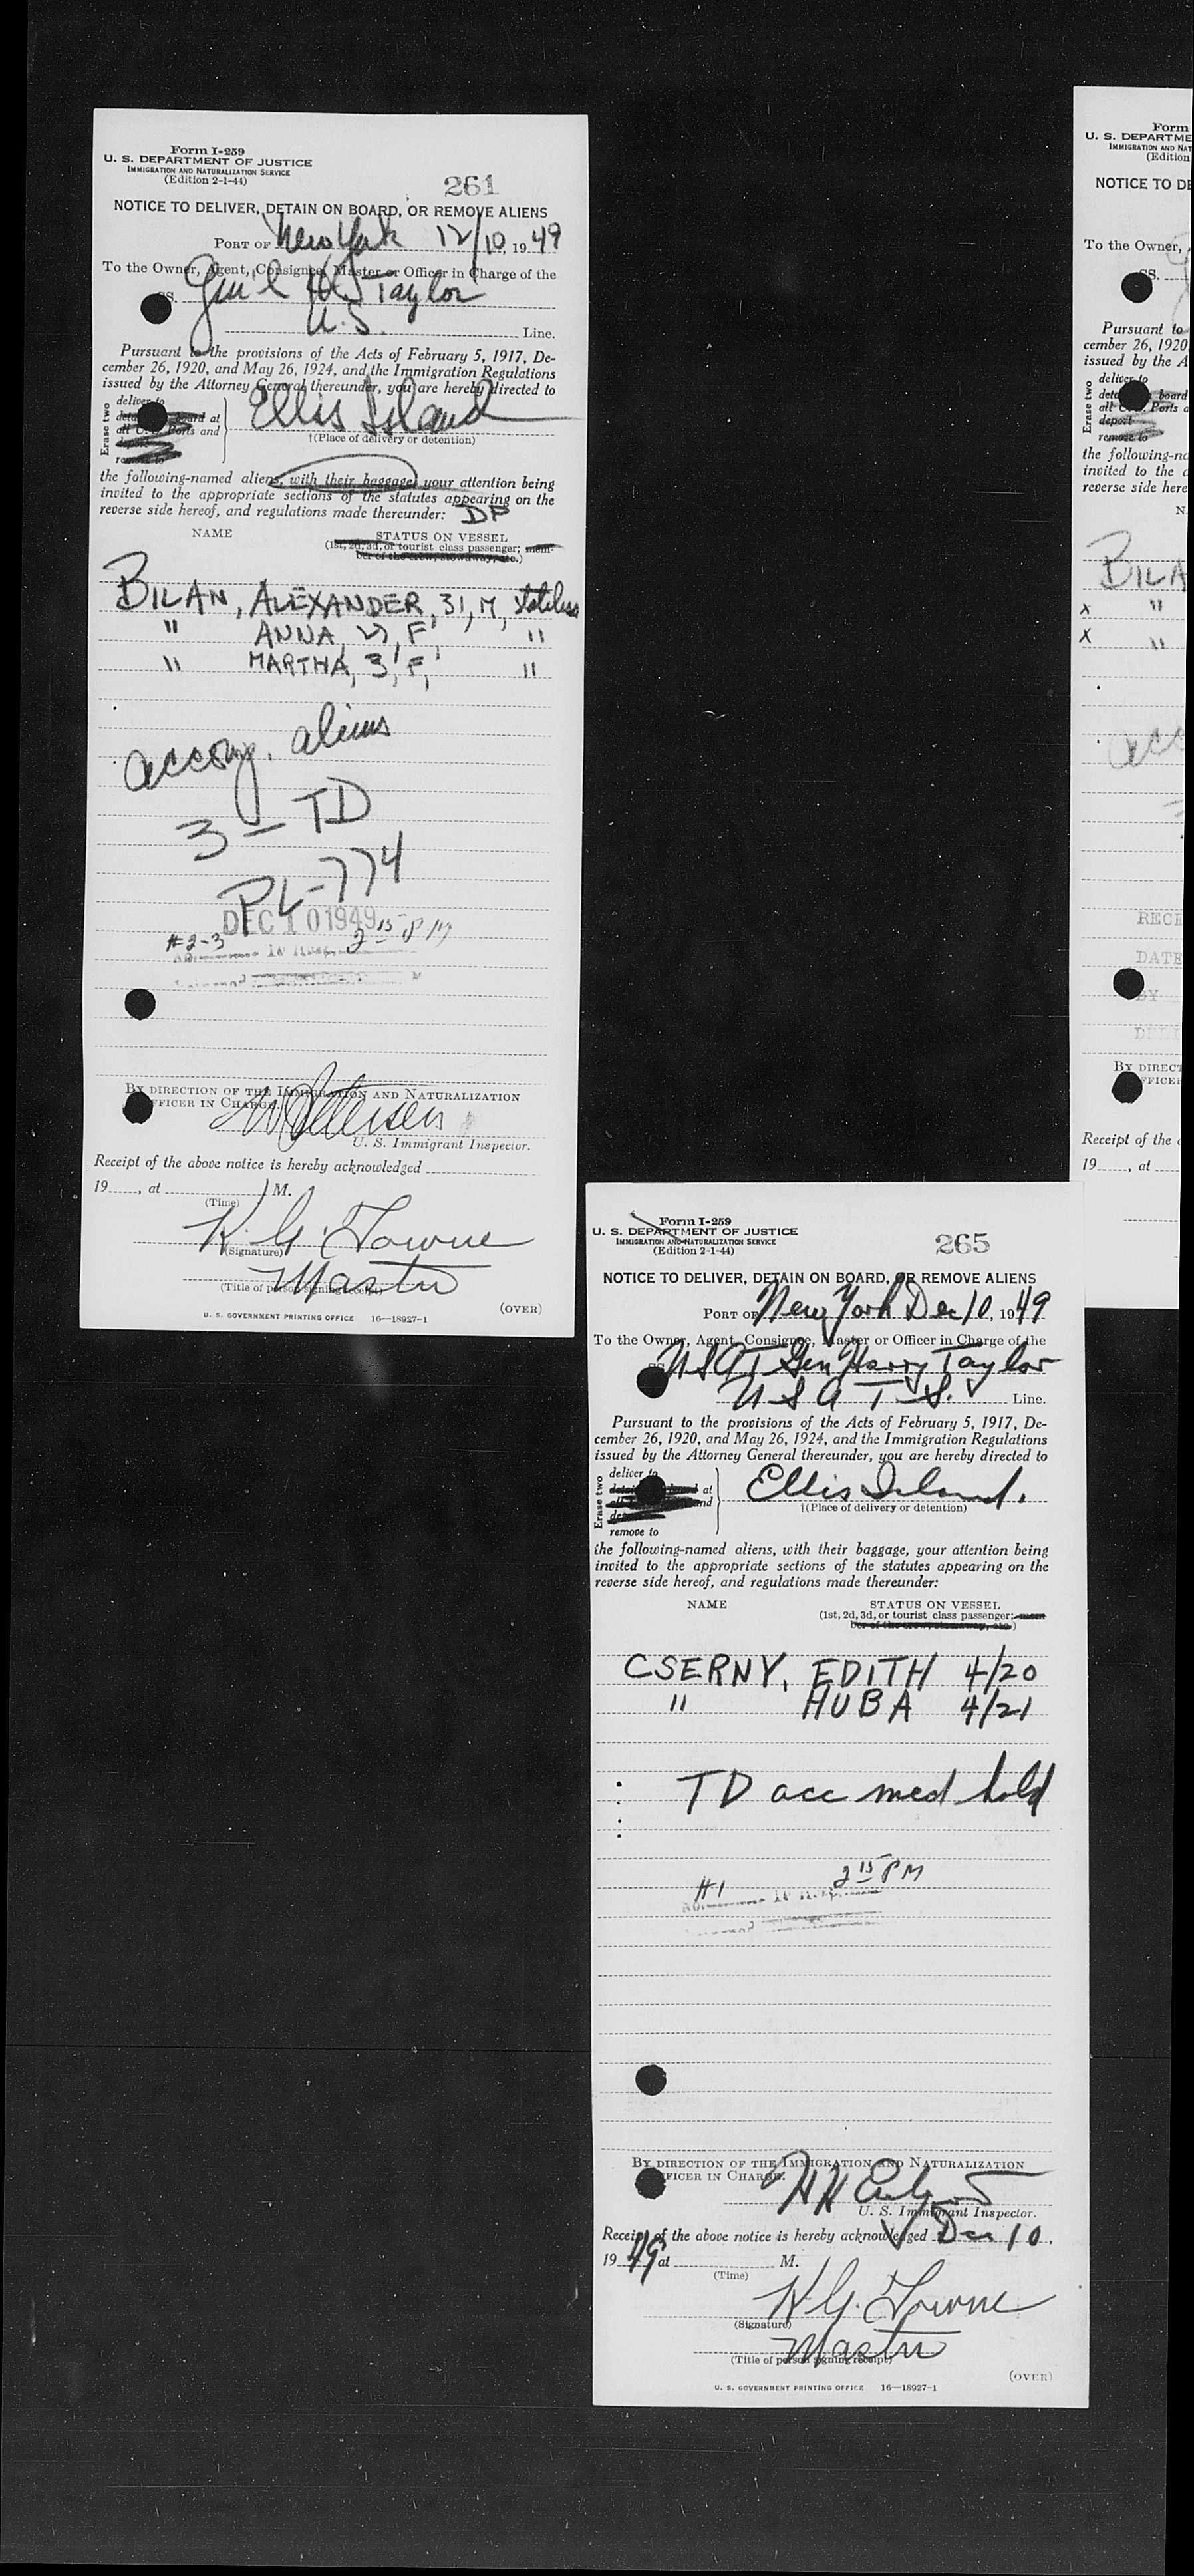 Form I-259
U. S. DEPARTMENT OF JUSTICE
IMMIGRATION AND NATURALIZATION SERVICE
(Edition 2-1-44)
261
NOTICE TO DELIVER, DETAIN ON BOARD, OR REMOVE ALIENS
PORT OF New York 12/10, 1949
To the Owner, Agent, Consignee, Master or Officer in Charge of the
SS. Gen'l H. Taylor
U.S. Line.
Pursuant to the provisions of the Acts of February 5, 1917, De-
cember 26, 1920, and May 26, 1924, and the Immigration Regulations
issued by the Attorney General thereunder, you are hereby directed to
Erase two
deliver to
board at
all Ports and
remove to
Ellis Island
†(Place of delivery or detention)
the following-named aliens, with their baggage, your attention being
invited to the appropriate sections of the statutes appearing on the
reverse side hereof, and regulations made thereunder: DP
NAME STATUS ON VESSEL
(1st, 2d, 3d, or tourist class passenger; mem-
ber of the crew, stowaway, etc.)
BILAN, ALEXANDER, 31, M, stateless
" ANNA, 27, F, "
" MARTHA, 3, F, "
accomp. aliens
3 - TD
PL-774
DEC 10 1949
#2-3 2 15 PM
BY DIRECTION OF THE IMMIGRATION AND NATURALIZATION
OFFICER IN CHARGE.
U. S. Immigrant Inspector.
Receipt of the above notice is hereby acknowledged
19 , at M.
(Time)
K. G. Towne
(Signature)
Master
(Title of person signing receipt)
(OVER)
U. S. GOVERNMENT PRINTING OFFICE 16—18927-1
Form I-259
U. S. DEPARTMENT OF JUSTICE
IMMIGRATION AND NATURALIZATION SERVICE
(Edition 2-1-44)
265
NOTICE TO DELIVER, DETAIN ON BOARD, OR REMOVE ALIENS
PORT OF New York Dec 10, 1949
To the Owner, Agent, Consignee, Master or Officer in Charge of the
USAT Gen Harry Taylor
U S A T S. Line.
Pursuant to the provisions of the Acts of February 5, 1917, De-
cember 26, 1920, and May 26, 1924, and the Immigration Regulations
issued by the Attorney General thereunder, you are hereby directed to
Erase two
deliver to
at
and
remove to
Ellis Island.
†(Place of delivery or detention)
the following-named aliens, with their baggage, your attention being
invited to the appropriate sections of the statutes appearing on the
reverse side hereof, and regulations made thereunder:
NAME STATUS ON VESSEL
(1st, 2d, 3d, or tourist class passenger; mem-
ber of the crew, stowaway, etc.)
CSERNY, EDITH 4/20
" HUBA 4/21
TD acc med hold
#1 2 15 PM
BY DIRECTION OF THE IMMIGRATION AND NATURALIZATION
OFFICER IN CHARGE.
U. S. Immigrant Inspector.
Receipt of the above notice is hereby acknowledged Dec 10,
1949 at M.
(Time)
K. G. Towne
(Signature)
Master
(Title of person signing receipt)
(OVER)
U. S. GOVERNMENT PRINTING OFFICE 16—18927-1
Form
U. S. DEPARTME
IMMIGRATION AND NAT
(Edition
NOTICE TO DE
To the Owner,
SS.
Pursuant to
cember 26, 1920
issued by the A
Erase two
deliver to
board
all Ports a
deport
remove to
the following-na
invited to the a
reverse side here
BILA
x "
x "
acc
RECE
DATE
BY
BY DIRECT
OFFICER
Receipt of the
19 , at